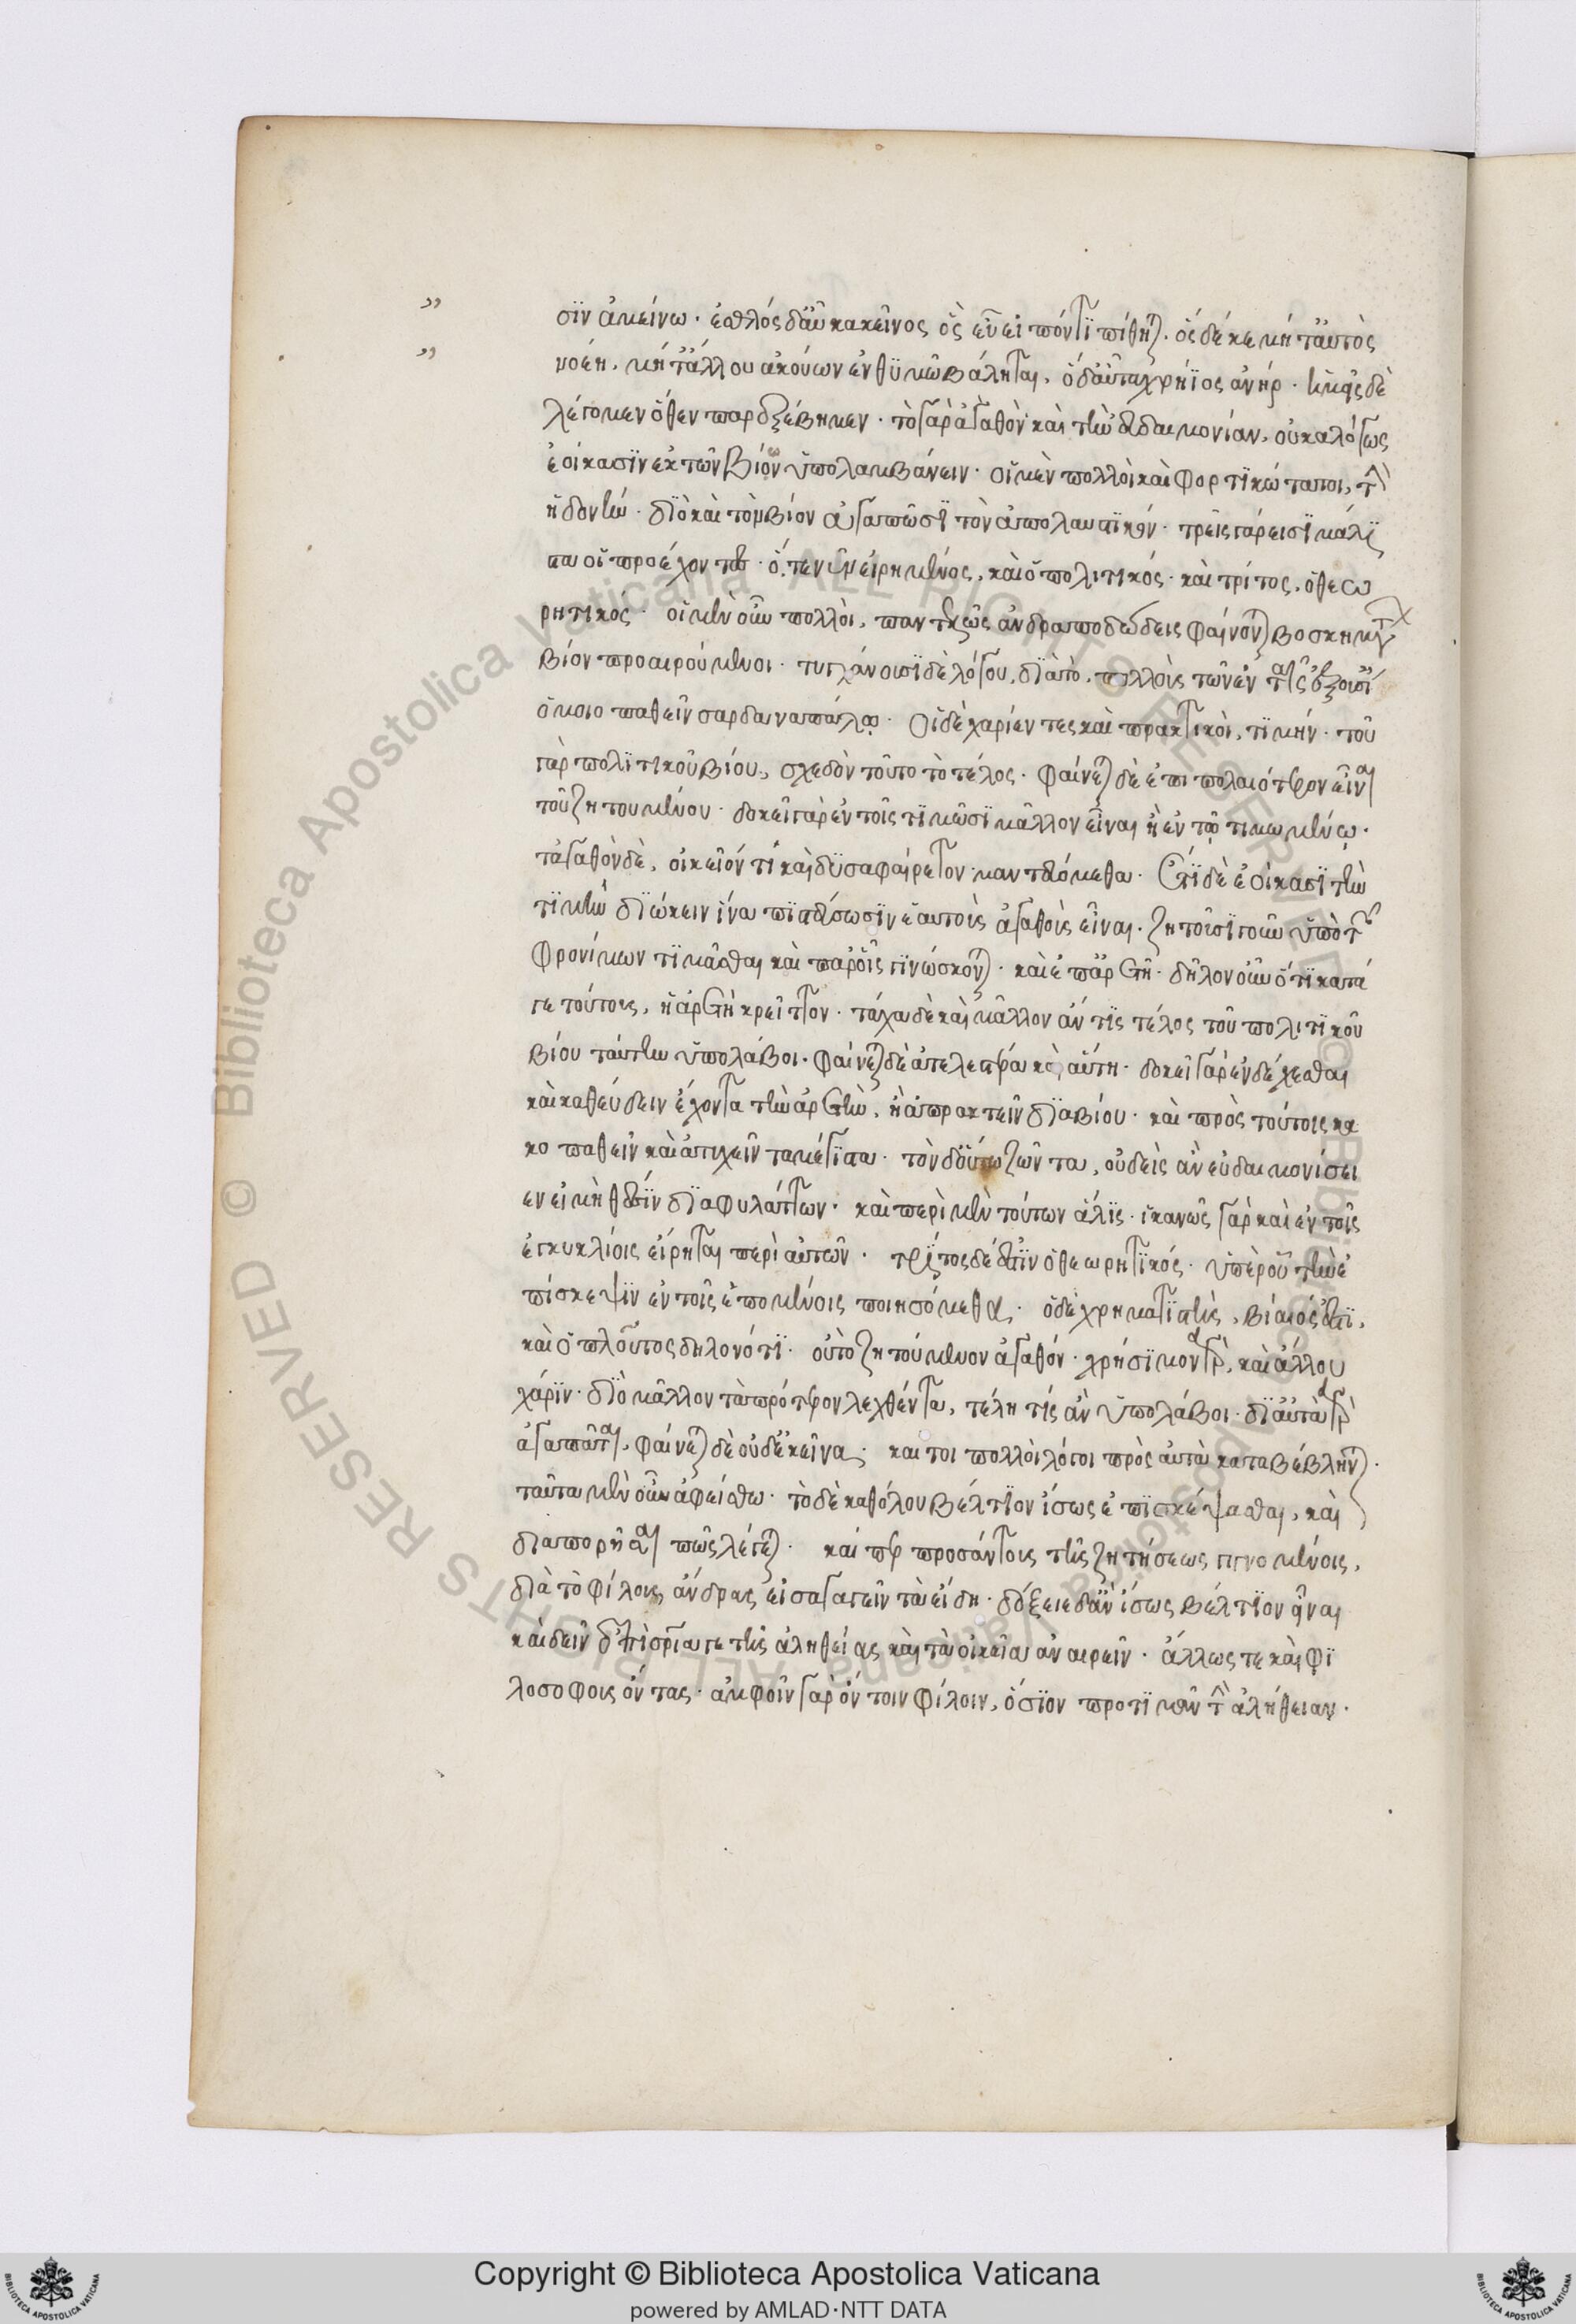 σϊν ἀμείνω· ἐσθλός δ' αὖ κἀκεῖνος ὃς εὖ εἰπόντϊ πίθητ(αι)· ὃς δέ κε μή τ' αὐτὸς
νοέῃ, μή τ' ἄλλου ἀκούων ἐν θϋμῶ βάληται, ὅδ' αὖτ' ἀχρήϊος ἀνήρ· ἡμεῖς δὲ
λέγομεν ὅθεν παρεξέβημεν· τὸ γὰρ ἀγαθὸν καὶ τὴν εὐδαιμονίαν, οὐκ ἀλόγως
ἐοίκασϊν ἐκ τῶν βίων ὑπολαμβάνειν· οἱ μὲν πολλοὶ καὶ φορτϊκώτατοι, τὴν
ἡδονήν· δϊὸ καὶ τὸν βίον ἀγαπῶσϊ τὸν ἀπολαυστϊκόν· τρεῖς γάρ εἰσϊ μάλϊσ
τα οἱ προέχοντες· ὅ, τε νῦν εἰρημένος, καὶ ὁ πολιτικός· καὶ τρίτος, ὁ θεω
ρητικός· οἱ μὲν οὖν πολλοὶ, παντελῶς ἀνδραποδώδεις φαίνονται βοσκημάτων
βίον προαιρούμενοι· τυγχάνουσϊ δὲ λόγου, δϊὰ τὸ, πολλοὺς τῶν ἐν ταῖς ἐξουσί
ὁμοιοπαθεῖν σαρδαναπάλῳ· Οἱ δὲ χαρίεντες καὶ πρακτικοὶ, τϊμήν· τοῦ
γὰρ πολϊτικοῦ βίου, σχεδὸν τοῦτο τὸ τέλος· φαίνεται δὲ ἐπιπολαιότερον εἶναι
τοῦ ζητουμένου· δοκεῖ γὰρ ἐν τοῖς τϊμῶσϊ μᾶλλον εἶναι ἢ ἐν τῷ τιμωμένῳ·
τἀγαθὸν δὲ, οἰκεῖόν τί καὶ δϋσαφαίρετον μαντευόμεθα· Ἔτϊ δὲ ἐοίκασϊ τὴν
τϊμὴν δϊώκειν ἵνα πϊστεύσωσϊν ἑαυτοὺς ἀγαθοὺς εἶναι· ζητοῦσϊ γοῦν ὑπὸ τῶν
φρονίμων τϊμᾶσθαι καὶ παρ' οἷς γϊνώσκονται· καὶ ἐπ' ἀρετῇ· δῆλον οὖν ὅτϊ κατά
γε τούτους, ἡ ἀρετὴ κρεῖττον· τάχα δὲ καὶ μᾶλλον ἄν τϊς τέλος τοῦ πολιτϊκοῦ
βίου ταύτην ὑπολάβοι· φαίνεται δὲ ἀτελεστέρα καὶ αὕτη· δοκεῖ γὰρ ἐνδέχεσθαι
καὶ καθεύδειν ἔχοντα τὴν ἀρετὴν, ἢ ἀπρακτεῖν δϊὰ βίου· καὶ πρὸς τούτοις κα
κοπαθεῖν καὶ ἀτυχεῖν τὰ μέγϊστα· τὸν δ' οὕτω ζῶντα, οὐδεὶς ἂν εὐδαιμονίσει
εν εἰ μὴ θέσϊν δϊαφυλάττων· καὶ περὶ μὲν τούτων ἅλϊς· ἱκανῶς γὰρ καὶ ἐν τοῖς
ἐγκυκλίοις εἴρηται περὶ αὐτῶν· τρίτος δέ ἐστϊν ὁ θεωρητϊκός· ὑπὲρ οὗ τὴν ἐ
πίσκεψϊν ἐν τοῖς ἑπομένοις ποιησόμεθα· ὁ δὲ χρηματϊστὴς, βίαιός ἐστϊ,
καὶ ὁ πλοῦτος δηλονότϊ· οὐ τὸ ζητούμενον ἀγαθόν· χρήσϊμον γὰρ, καὶ ἄλλου
χάρϊν· δϊὸ μᾶλλον τὰ πρότερον λεχθέντα, τέλη τίς ἂν ὑπολάβοι· δϊ' αὑτὰ γὰρ
ἀγαπᾶται, φαίνεται δὲ οὐδ' ἐκεῖνα· καί τοι πολλοὶ λόγοι πρὸς αὐτὰ καταβέβληνται·
ταῦτα μὲν οὖν ἀφείσθω· τὸ δὲ καθόλου βέλτϊον ἴσως ἐπϊσκέψασθαι, καὶ
δϊαπορῆσαι πῶς λέγεται· καί περ προσάντους τῆς ζητήσεως γινομένοις,
δϊὰ τὸ φίλους ἄνδρας εἰσαγαγεῖν τὰ εἴδη· δόξειε δ' ἂν ἴσως βέλτϊον εἶναι
καὶ δεῖν ἐπὶ σωτηρίᾳ γε τῆς ἀληθείας καὶ τὰ οἰκεῖα ἀναιρεῖν· ἄλλως τε καὶ φϊ
λοσόφους ὄντας· ἀμφοῖν γὰρ ὄντοιν φίλοιν, ὅσϊον προτϊμᾶν τὴν ἀλήθειαν·
Copyright © Biblioteca Apostolica Vaticana
powered by AMLAD·NTT DATA